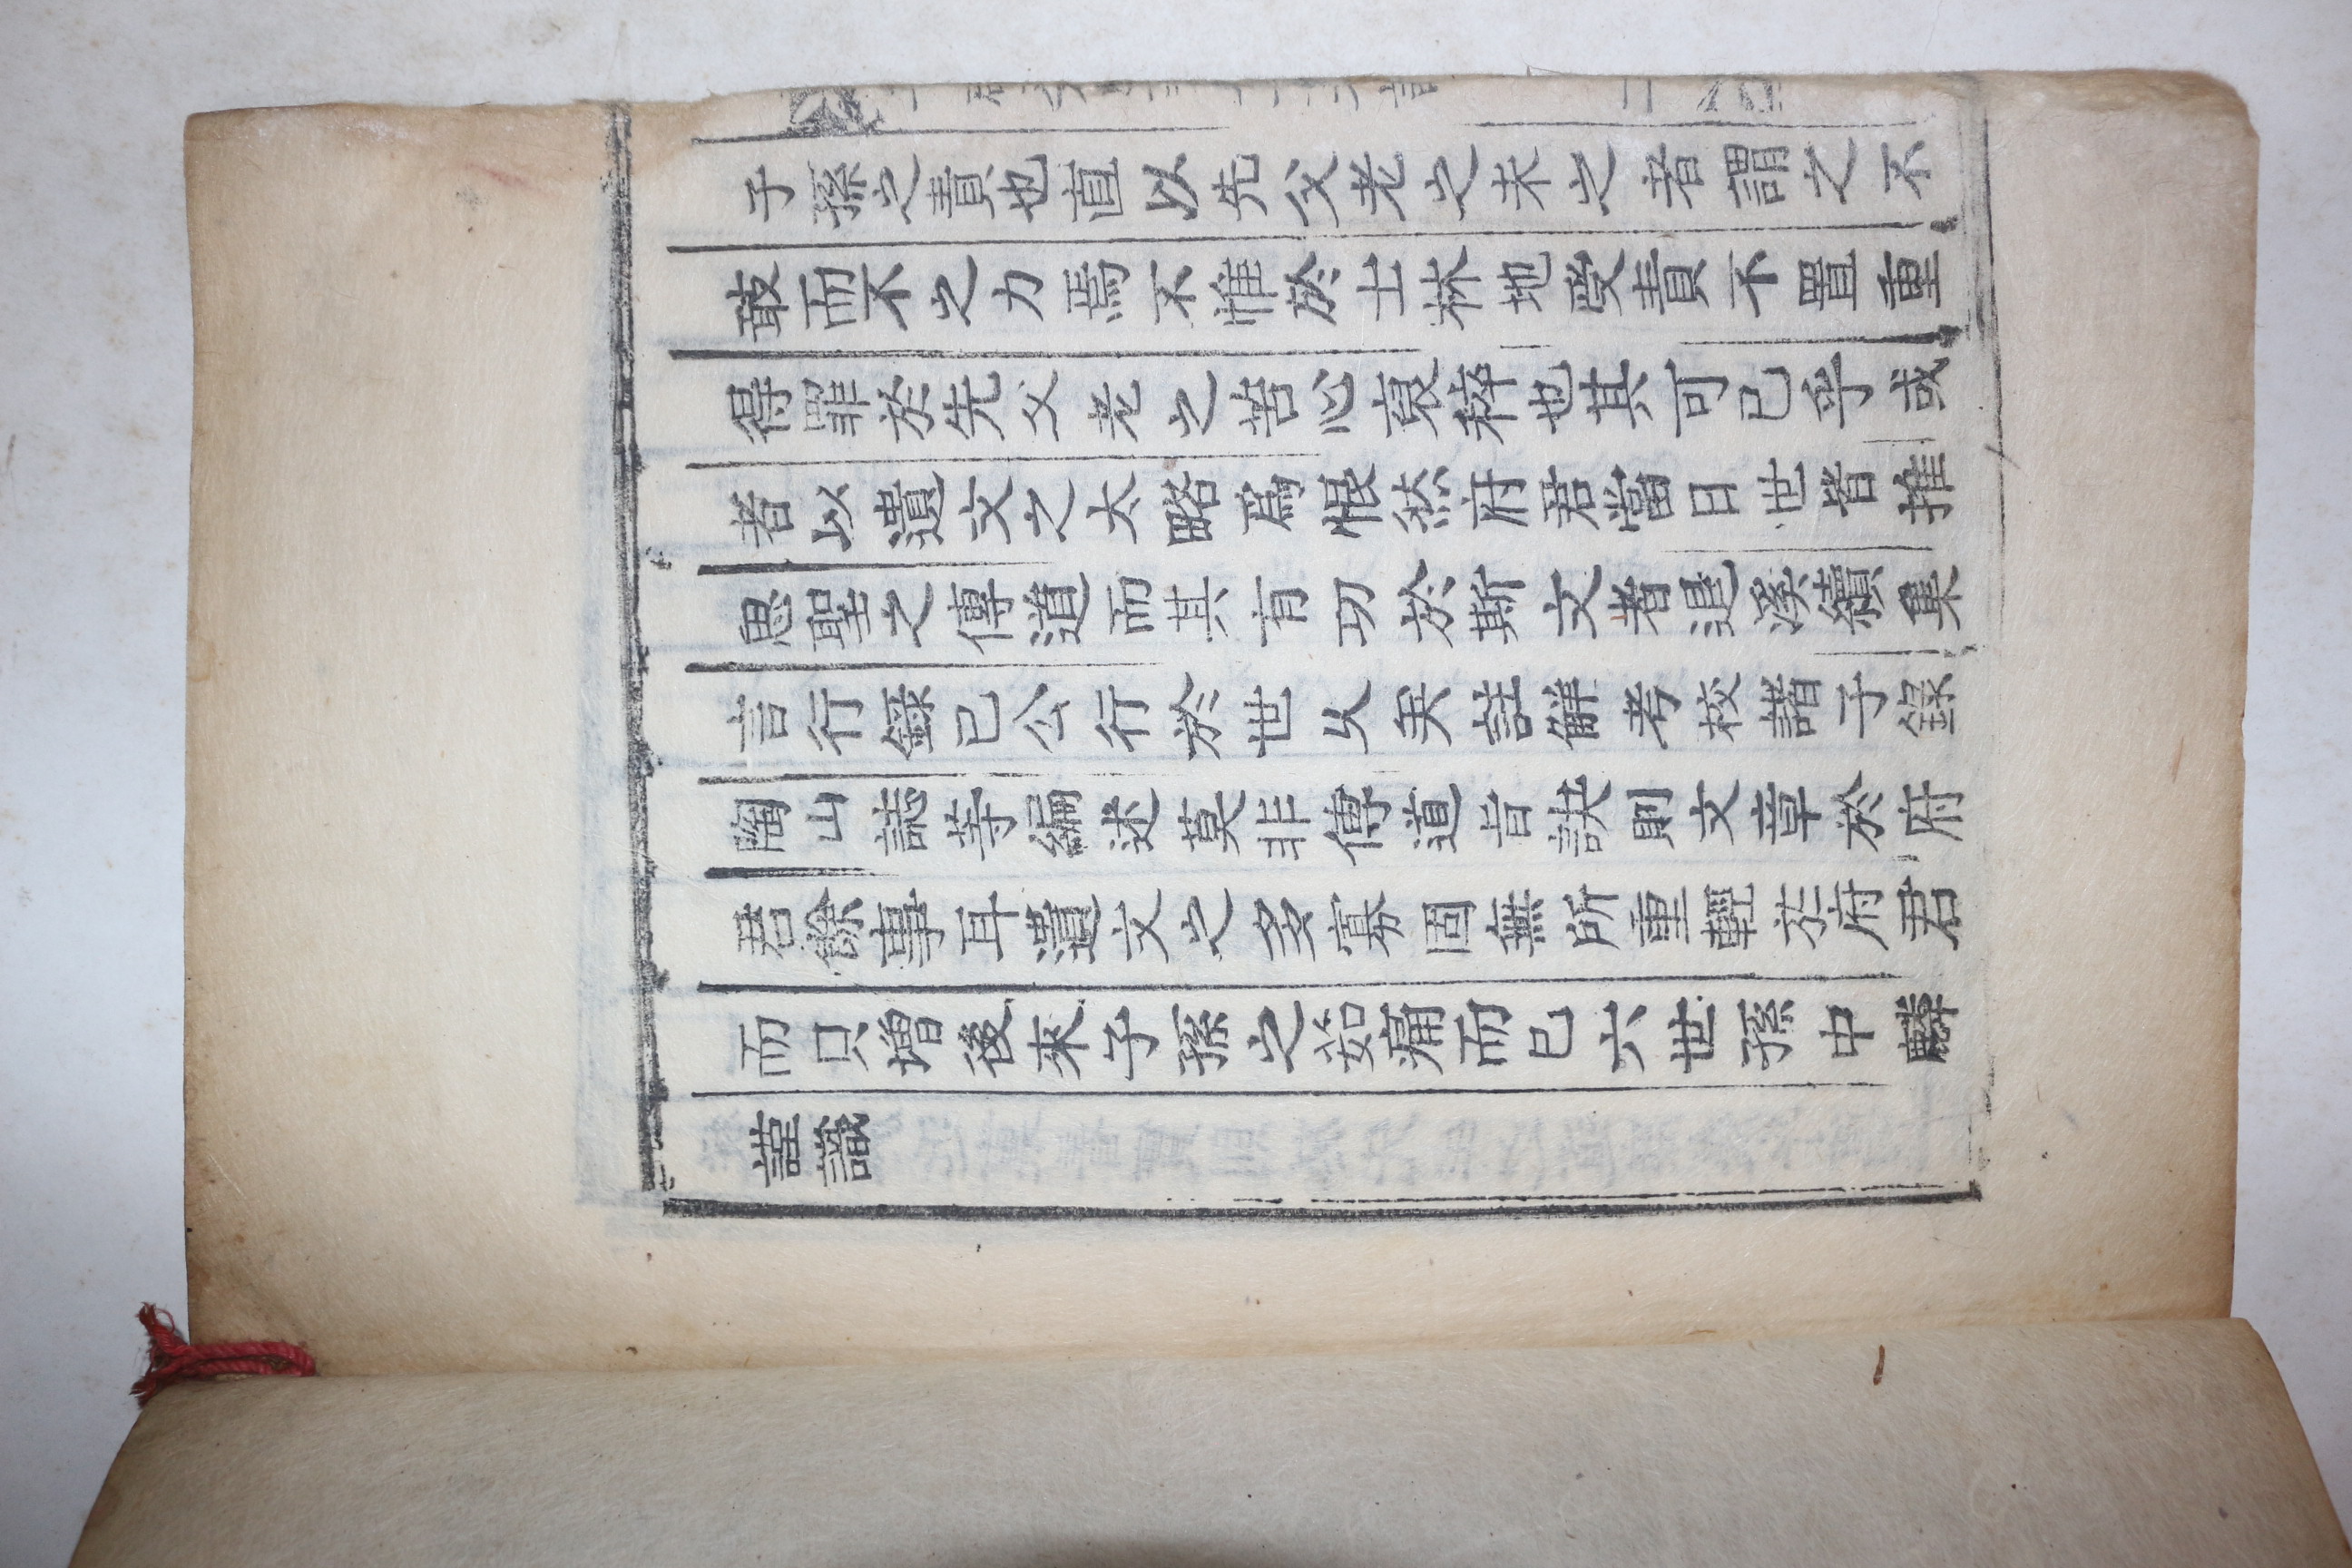 子孫之責也直以先父老之未之者謂之不
敢而不之力焉不惟於士林地受責不置重
得罪於先父老之苦心裒稡也其可已乎或
者以遺文之太略爲恨然府君當日世皆推
思聖之傳道而其有功於斯文者退溪續集
言行錄已公行於世久矣註解考校諸子錄
陶山誌等編述莫非傳道旨訣則文章於府
君餘事耳遺文之多寡固無所重輕於府君
而只增後來子孫之茹痛而已六世孫中麟
謹識